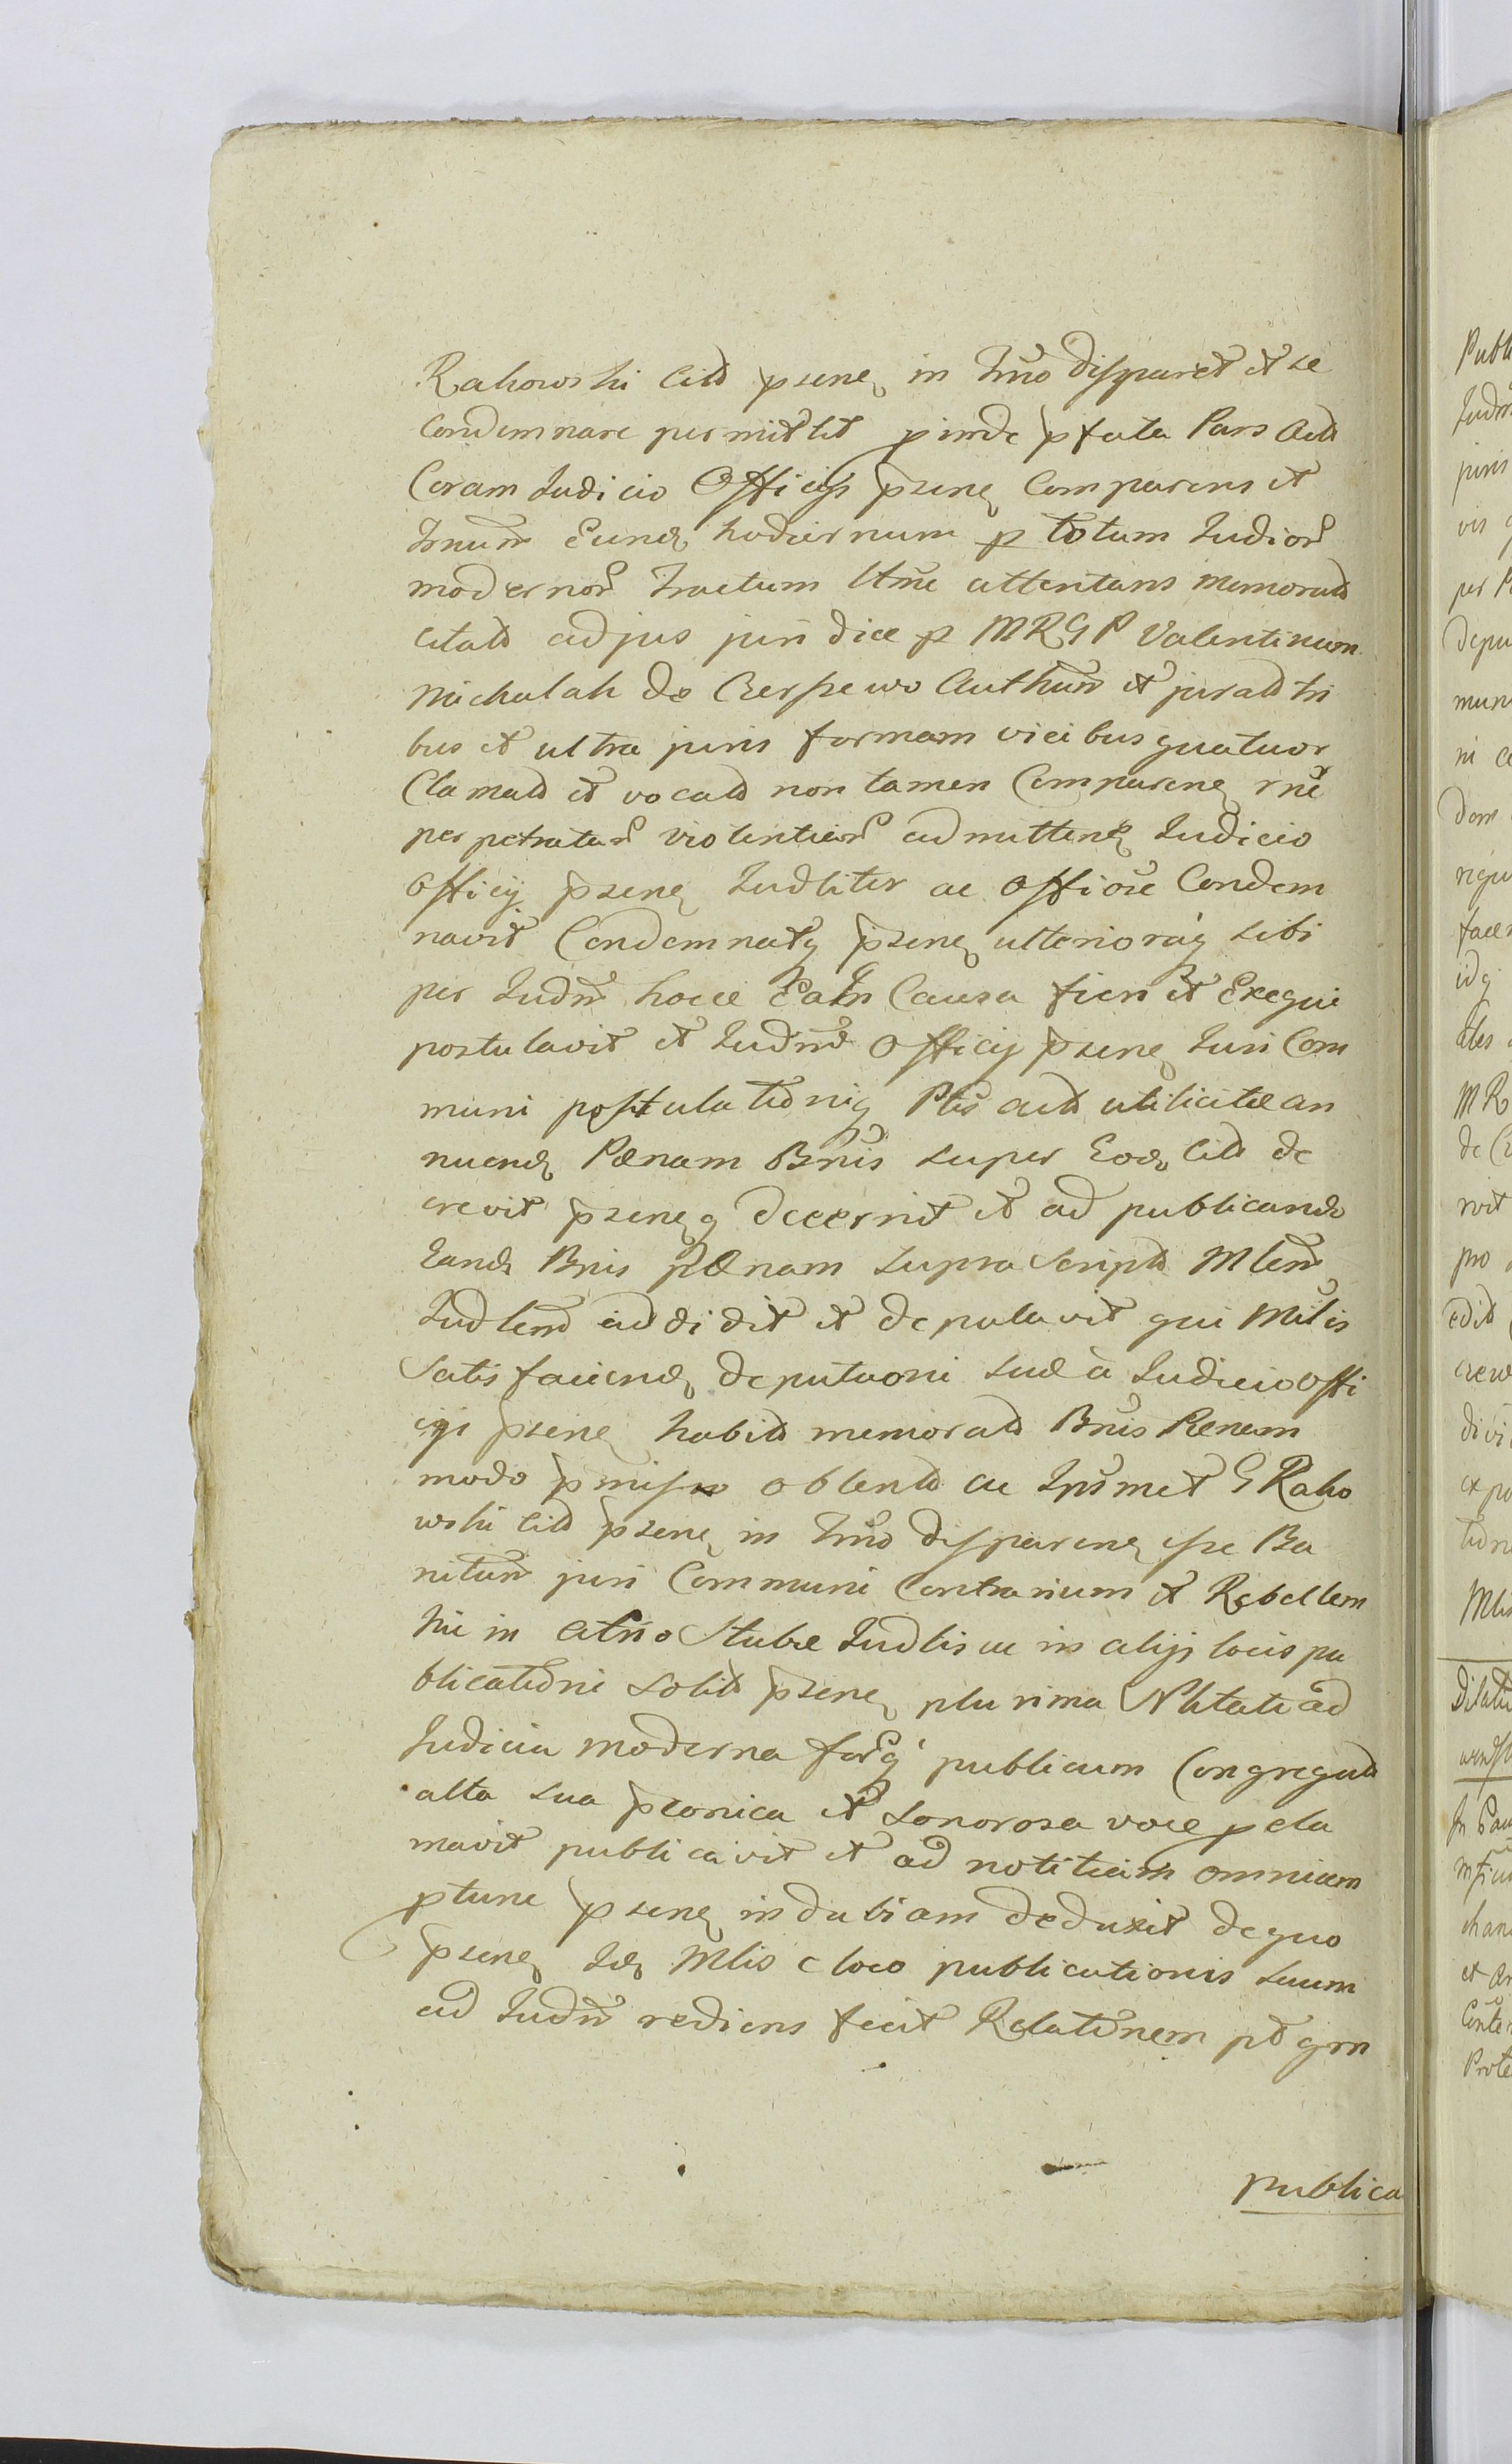 Rakowski Citt psens in Tmo disparet et se
Condemnare permittit pinde pfata Pars Actt
Coram Judicio Officijs psens Comparens et
Tmum Eund hodiernum p totum Judior
modernor Tractum Ltme attentans memoratt
citatt ad jus juridice p MRGP Valentinum
Michalak de Czerszewo Authum et juratt tri
bus et ultra juris formam vicibus quatuor
Clamatt et vocatt non tamen Comparens rne
perpetratar violentiar admittens Judicio
Officij psens Judliter ac Officse Condem
navit Condemnatq psens ulterioraq sibi
per Judm hocce Ea in Causa fieri et Exequi
postulavit et Judm Officij psens Juri Com
muni postulationiq Ptis actt utilicitæ an
nuend Pænam Bnis super Eod Citt de
crevit psensq decernit et ad publicand
Eand Bnis pænam supra Scriptt Mlem
Judlem addidit et deputavit qui Mlis
Satisfaciend deputaoni suæ à Judicio Offi
cijs psens habitt memoratt Bnis Pænam
modo pmisso obtentt ac Ipsmet G Rako
wski citt psens in Tmo disparens esse Ba
nitum juri Communi Contrarium et Rebellem
hic in Atrio Stubæ Judlis ac in alijs locis pu
blicationi solitt psens plurima Nbtate ad
Judicia moderna forq publicum Congregatt
alta sua pconica et sonorosa voce pcla
mavit publicavit et ad notitiam omnium
ptunc psens indubiam deduxit de quo
psens Id Mlis e loco publicationis suum
ad Judm rediens fecit Relationem pt grm
publica
Publ
Judm
juris
vis
per P
depu
mun
ni c
dom
rigu
facer
idq
ales
MR
de C
vit
pro
edit
divi
Mlis
Dilatio
In Cau
chan
et
Conte
Prote